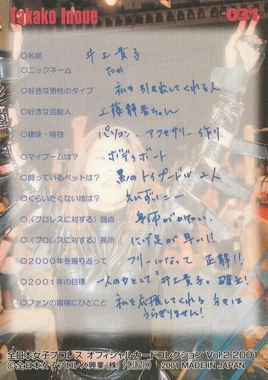 Takako Inoue 031
○名前 井上貴子
○ニックネーム
○好きな男性のタイプ 私を引っ張ってくれる人
○好きな芸能人 工藤静香ちゃん
○趣味・特技 パソコン、アクセサリー作り
○マイブームは? ボディボード
○飼っているペットは? 黒のトイプードル 2人
○くらいたくない技は? えいずいニー
○〈プロレスに対する〉弱点 身体がかたい。
○〈プロレスに対する〉長所 にげ足が早い!!
○2000年を振り返って フリーになって 正解!!
○2001年の目標 一人の女として“井上貴子”確立!
○ファンの皆様にひとこと 私を応援してくれる方は
うらぎりません!
全日本女子プロレス オフィシャルカードコレクション Vol.2 2001
©全日本女子プロレス興業(株) 2001 MADE IN JAPAN